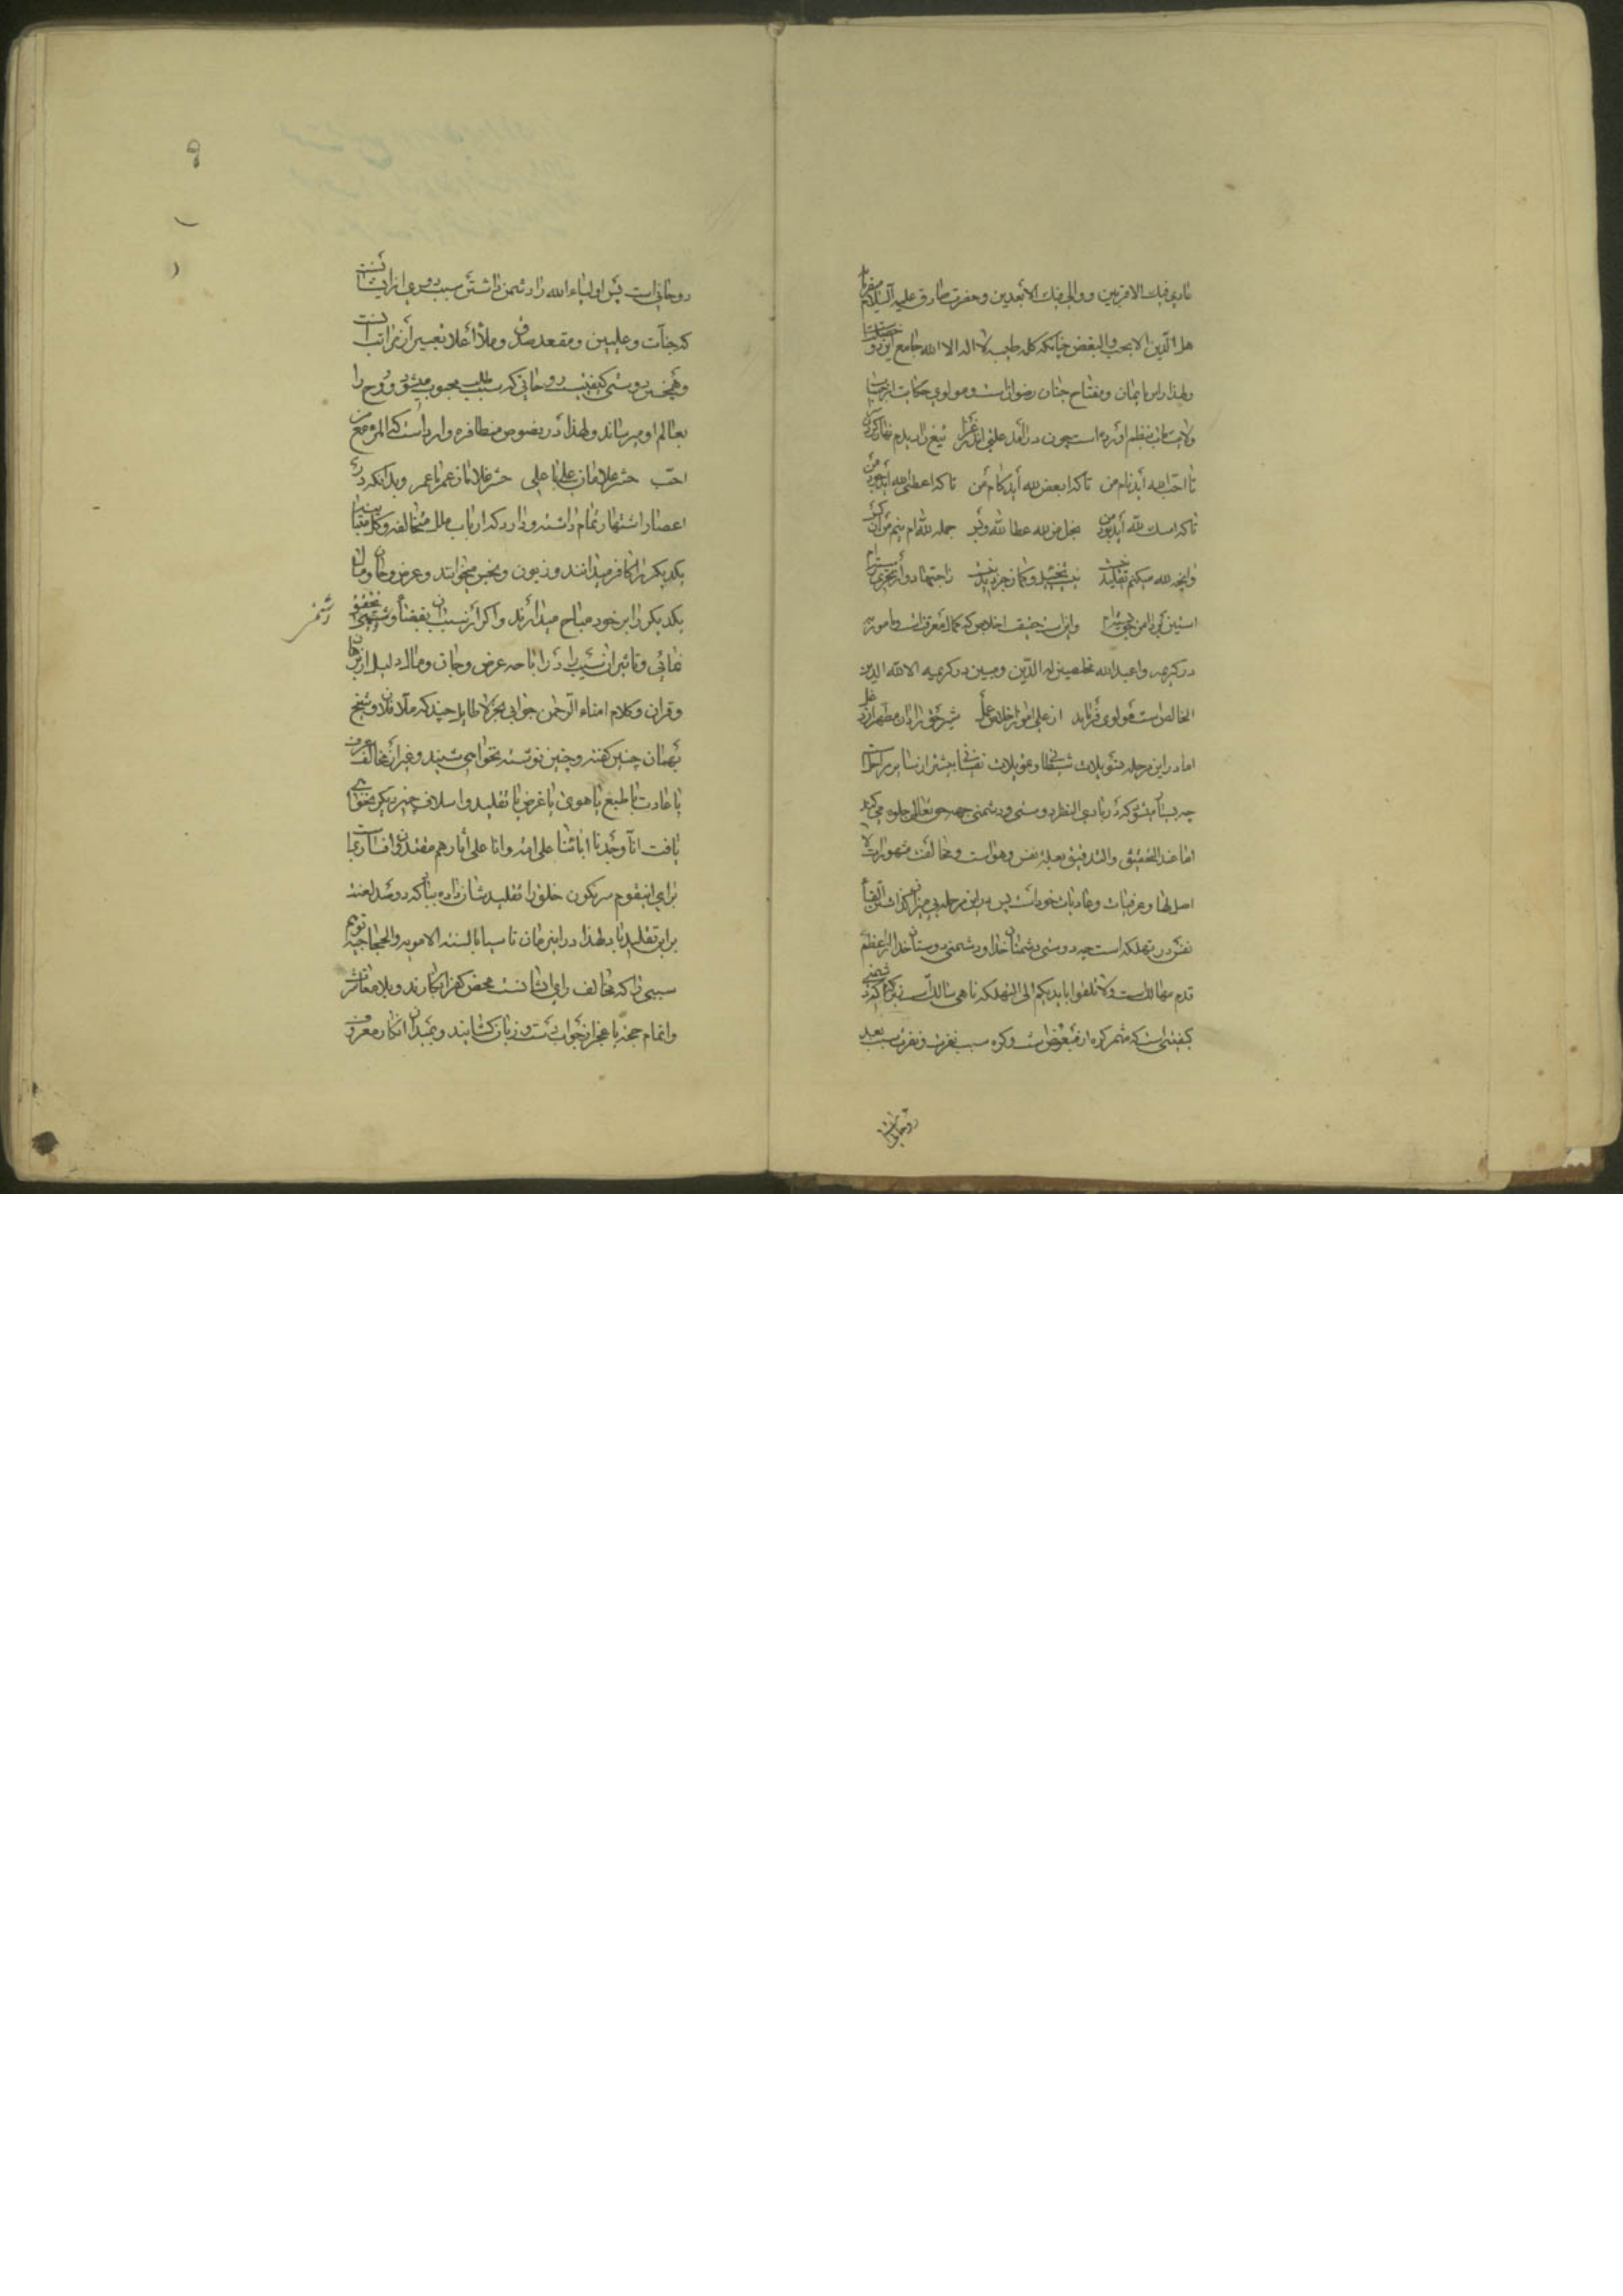 عادی فیک الاقربین و والی فیک الابعدین و حضرت صادق علیه السلام میفرماید
هل الدین الا الحب والبغض چنانکه کلمه طیبه لا اله الا الله جامع این دو
ولهذا در ایمان و مفتاح جنان رضوانست و مولوی حکایت از جناب
ولایت مآب بنظم آورده است چون درآمد علتی اندر غزا تیغ را دیدم نهان کردن
تا احب لله آید نام من تا که ابغض لله آید کام من تا که اعطی لله آید جود من
تا که امسک لله آید بود من بخل من لله عطا لله و بس جمله لله ام نیم من آن کس
وانچه لله میکنم تقلید نیست نیست تخییل و گمان جز دید نیست ز اجتهاد و از تحری رسته ام
آستین بر دامن حق بسته ام و این است حقیقت اخلاص که کمال معرفت است و مامور به
در کریمه واعبد الله مخلصین له الدین و مبین در کریمه الا لله الدین
الخالص است مولوی فرماید از علی آموز اخلاص عمل شیر حق را دان مطهر از دغل
اما در این مرحله تسویلات شیطانی و تمویلات نفسانی بیشتر از سایر مراحل است
چه بسا میشود که در بادی النظر دوستی و دشمنی جهة حق تعالی جلوه می کند
اما عند التحقیق والتدقیق بعلة نفس و هواست و مخالفت مشهورات لا
اصل لها و عرفیات و عادیات خود است پس در این مرحله بی میزان گذاشتن
نفس در تهلکه است چه دوستی دشمنان خدا و دشمنی دوستان خدا از اعظم
قدم مهالک است ولا تلقوا بایدیکم الی التهلکه ناهی سالک است
کیفیتی است که مثمر کره از مبغوض است و کره سبب نفرت و نفرت سبب بعد
روحانی است
روحانی است پس اولیاء الله را دشمن داشتن سبب دوری از ایشانست
که جنات و علیین و مقعد صدق و ملأ اعلا تعبیر از مراتب
و همچنین دوستی کیفیتیست روحانی که سبب طلب محبوب میشود و روح را
بعالم او میرساند ولهذا در نصوص متظافره وارد است که المرء مع من
احب حشر غلامان علی با علی حشر غلامان عمر با عمر و بدانکه در
اعصار اشتهار تمام داشته و دارد که ارباب ملل مختلفه و کل
یکدیگر را کافر میدانند و زبون و نجس میخوانند و عرض و جان و مال
یکدیگر را بر خود مباح میدارند و اگر از سبب آن بغضا و دشمنی تحقیق
دشمنی
نمائی و تاثیر آن سبب را در اباحه عرض و جان و مال دلیل از برهان
و قران و کلام امناء الرحمن جوابی بجز لا طایل چند که ملا فلان و شیخ
بهمان چنین گفته و چنین نوشته نخواهی شنید و غیر از مخالف عرف
یا عادت یا طبع یا هوی یا غرض یا تقلید و اسلاف چیز دیگر نخواهی
یافت انا وجدنا ابائنا علی امة وانا علی اثارهم مقتدون
برای اینقوم سرنگون خلق را تقلیدشان داده بباد که دو صد لعنت
بر این تقلید باد لهذا در اینزمان تاسیا بالسنة الامویه والحجاجیه
سبی را که مخالف رای ایشانست محض کفر انگارند و بلا معاشرت
و اتمام حجة با عجز از جواب دست و زبان گشایند و بمیدان انکار معروف